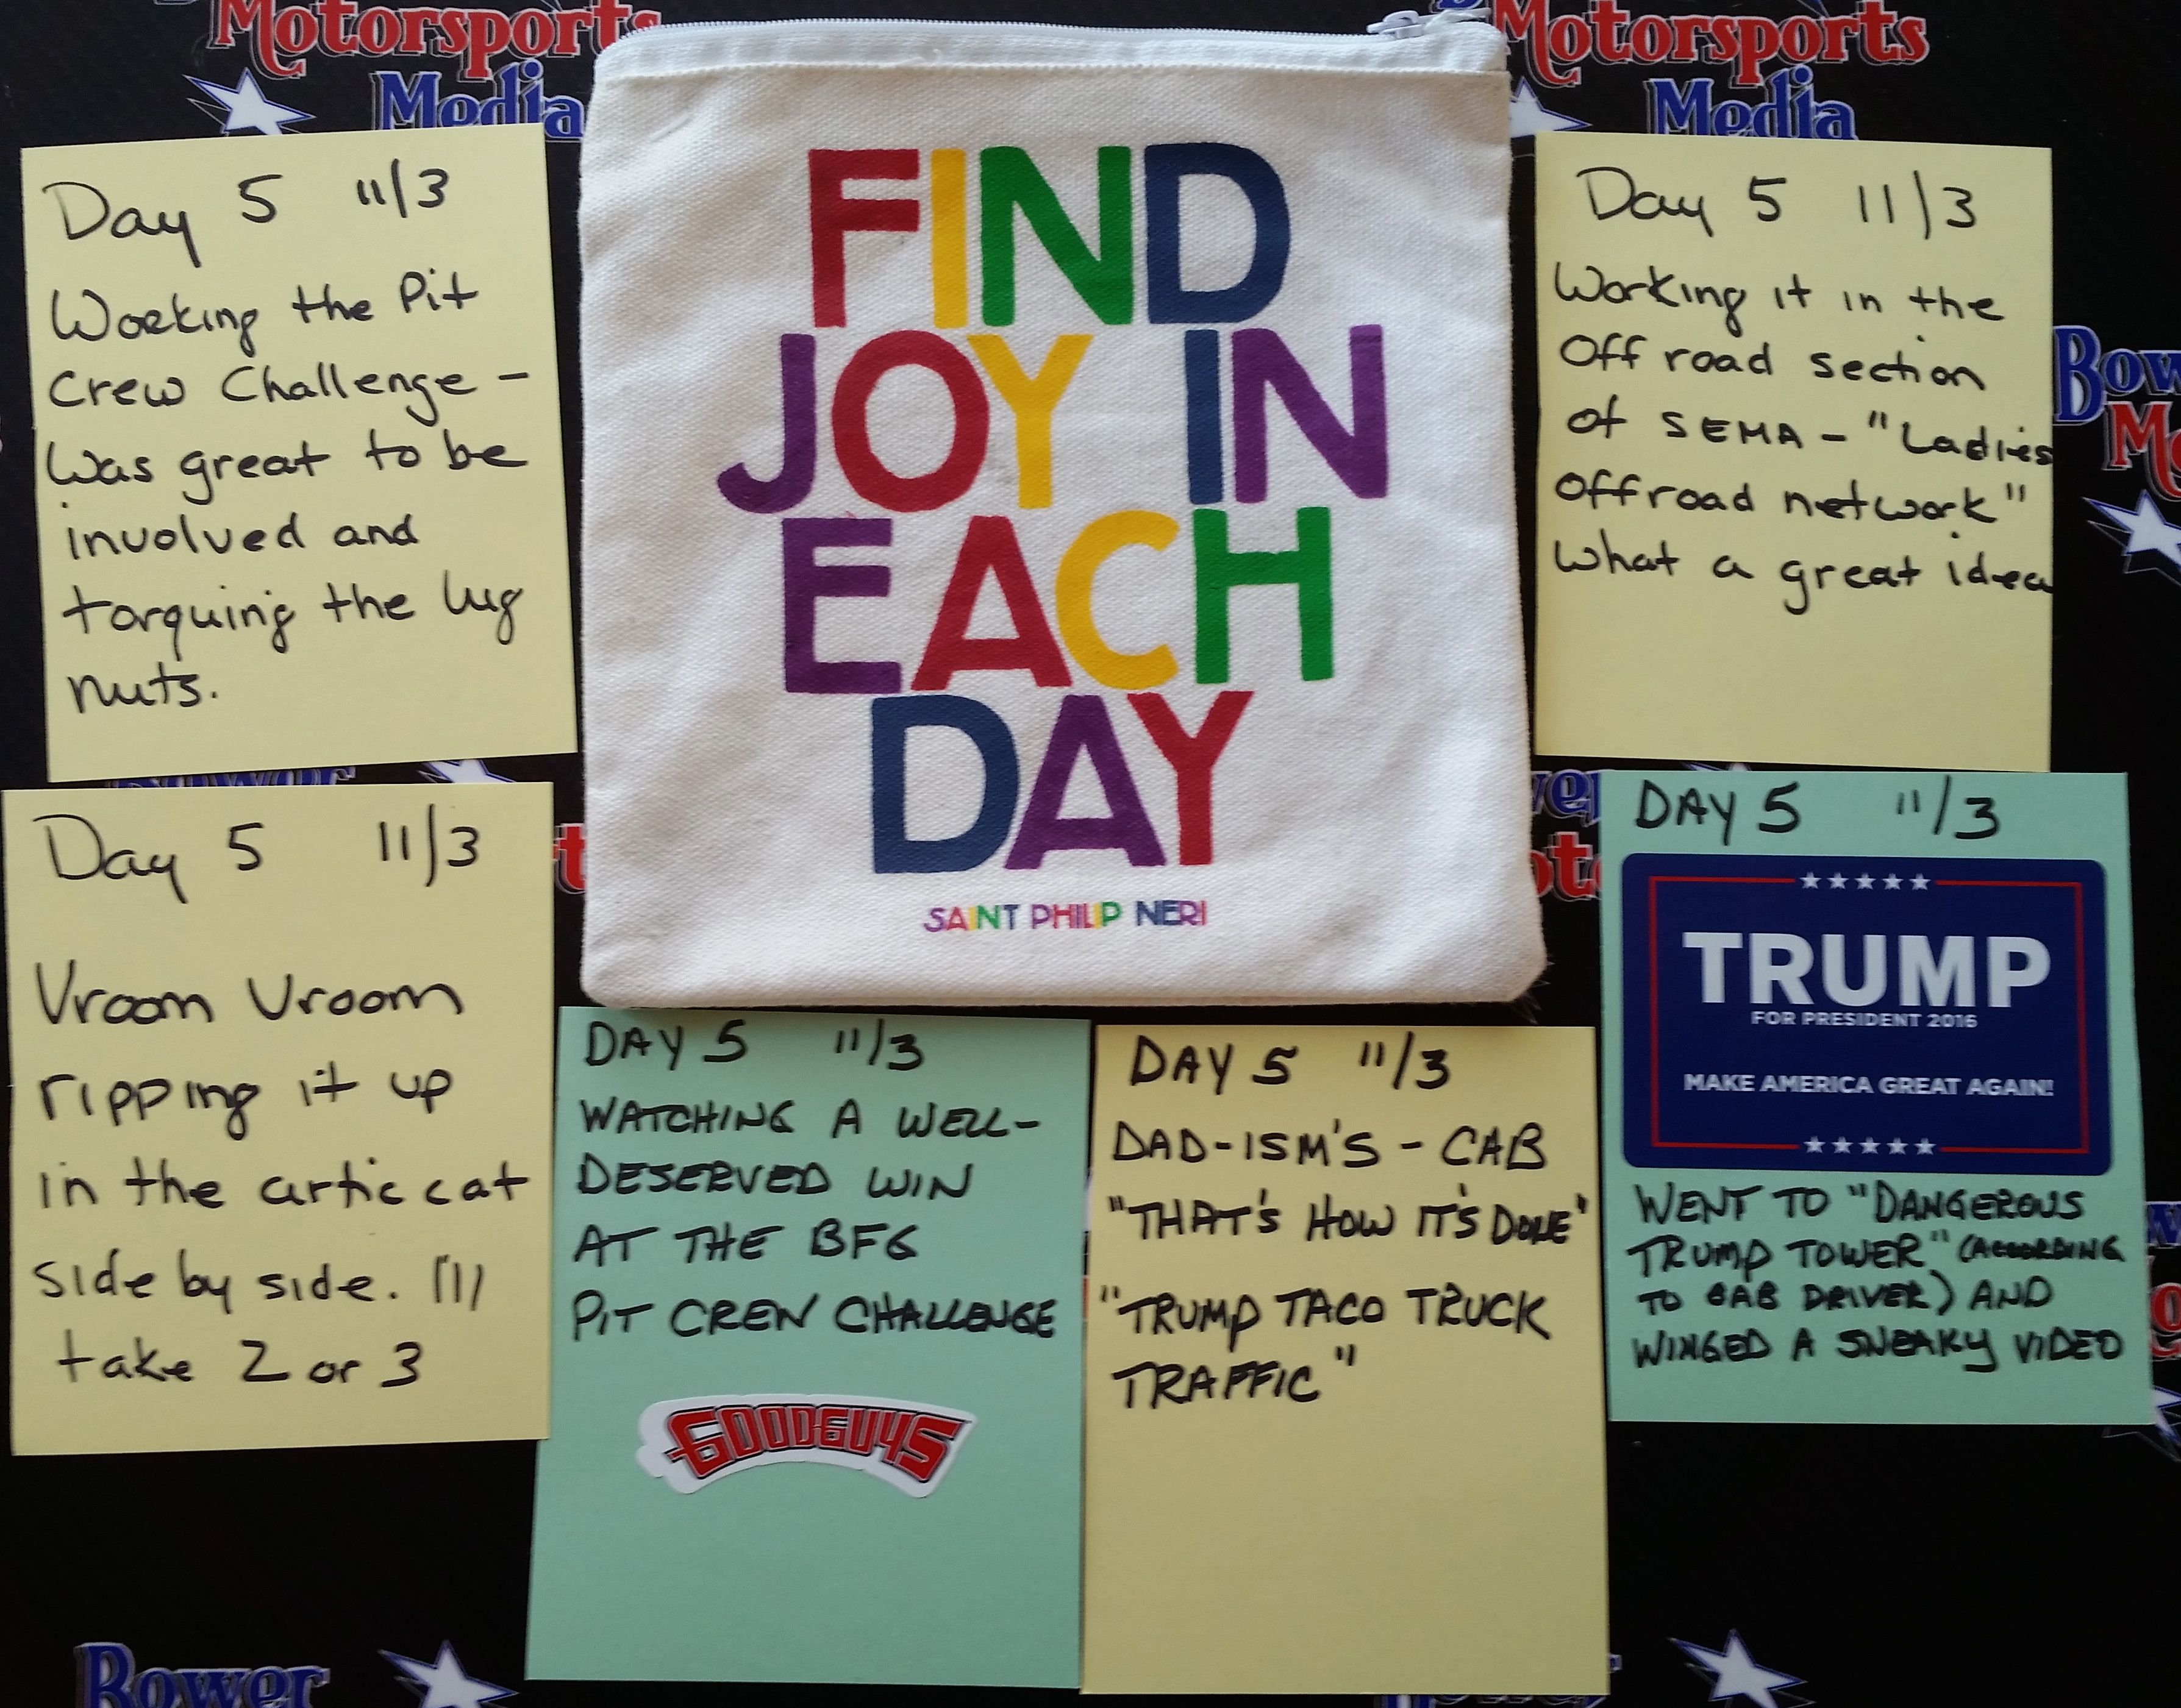 Motorsports
Media
Motorsports
Media
Day 5 11/3
Working the Pit
Crew Challenge -
Was great to be
involved and
torquing the lug
nuts.
FIND
JOY IN
EACH
DAY
SAINT PHILIP NERI
Day 5 11/3
Working it in the
Off road section
of SEMA - "Ladies
Offroad network"
What a great idea
Bow
Mo
Bower
Day 5 11/3
Vroom Vroom
ripping it up
in the artic cat
side by side.
take 2 or 3
DAY 5 11/3
WATCHING A WELL-
DESERVED WIN
AT THE BFG
PIT CREW CHALLENGE
GOODGUYS
DAY 5 11/3
DAD-ISM'S - CAB
"THAT'S HOW IT'S DONE"
"TRUMP TACO TRUCK
TRAFFIC"
DAY 5 11/3
TRUMP
FOR PRESIDENT 2016
MAKE AMERICA GREAT AGAIN!
WENT TO "DANGEROUS
TRUMP TOWER" (ACCORDING
TO CAB DRIVER) AND
WINGED A SNEAKY VIDEO
Bower